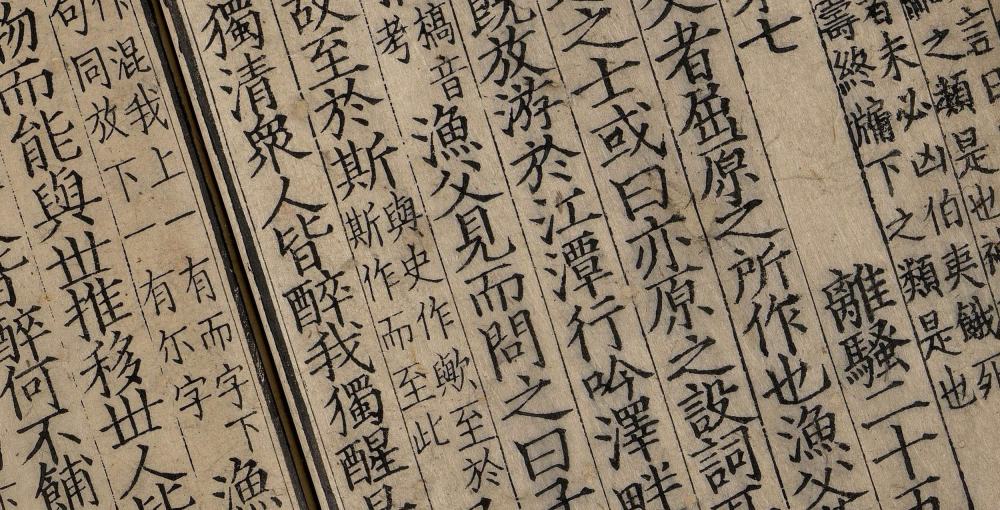 言曰
之類是也
未必凶伯夷餓列
壽終牖下之類是也
七離騷二十五
父者屈原之所作也漁父
之士或曰亦原之設詞
既放游於江潭行吟澤畔
槁音
考
漁父見而問之曰子
故至於斯
與史作歟至於
斯作而至此
獨清衆人皆醉我獨醒是
混我上一有而字下
句同放下一有尔字
漁
物而能與世推移世人皆
醉何不餔